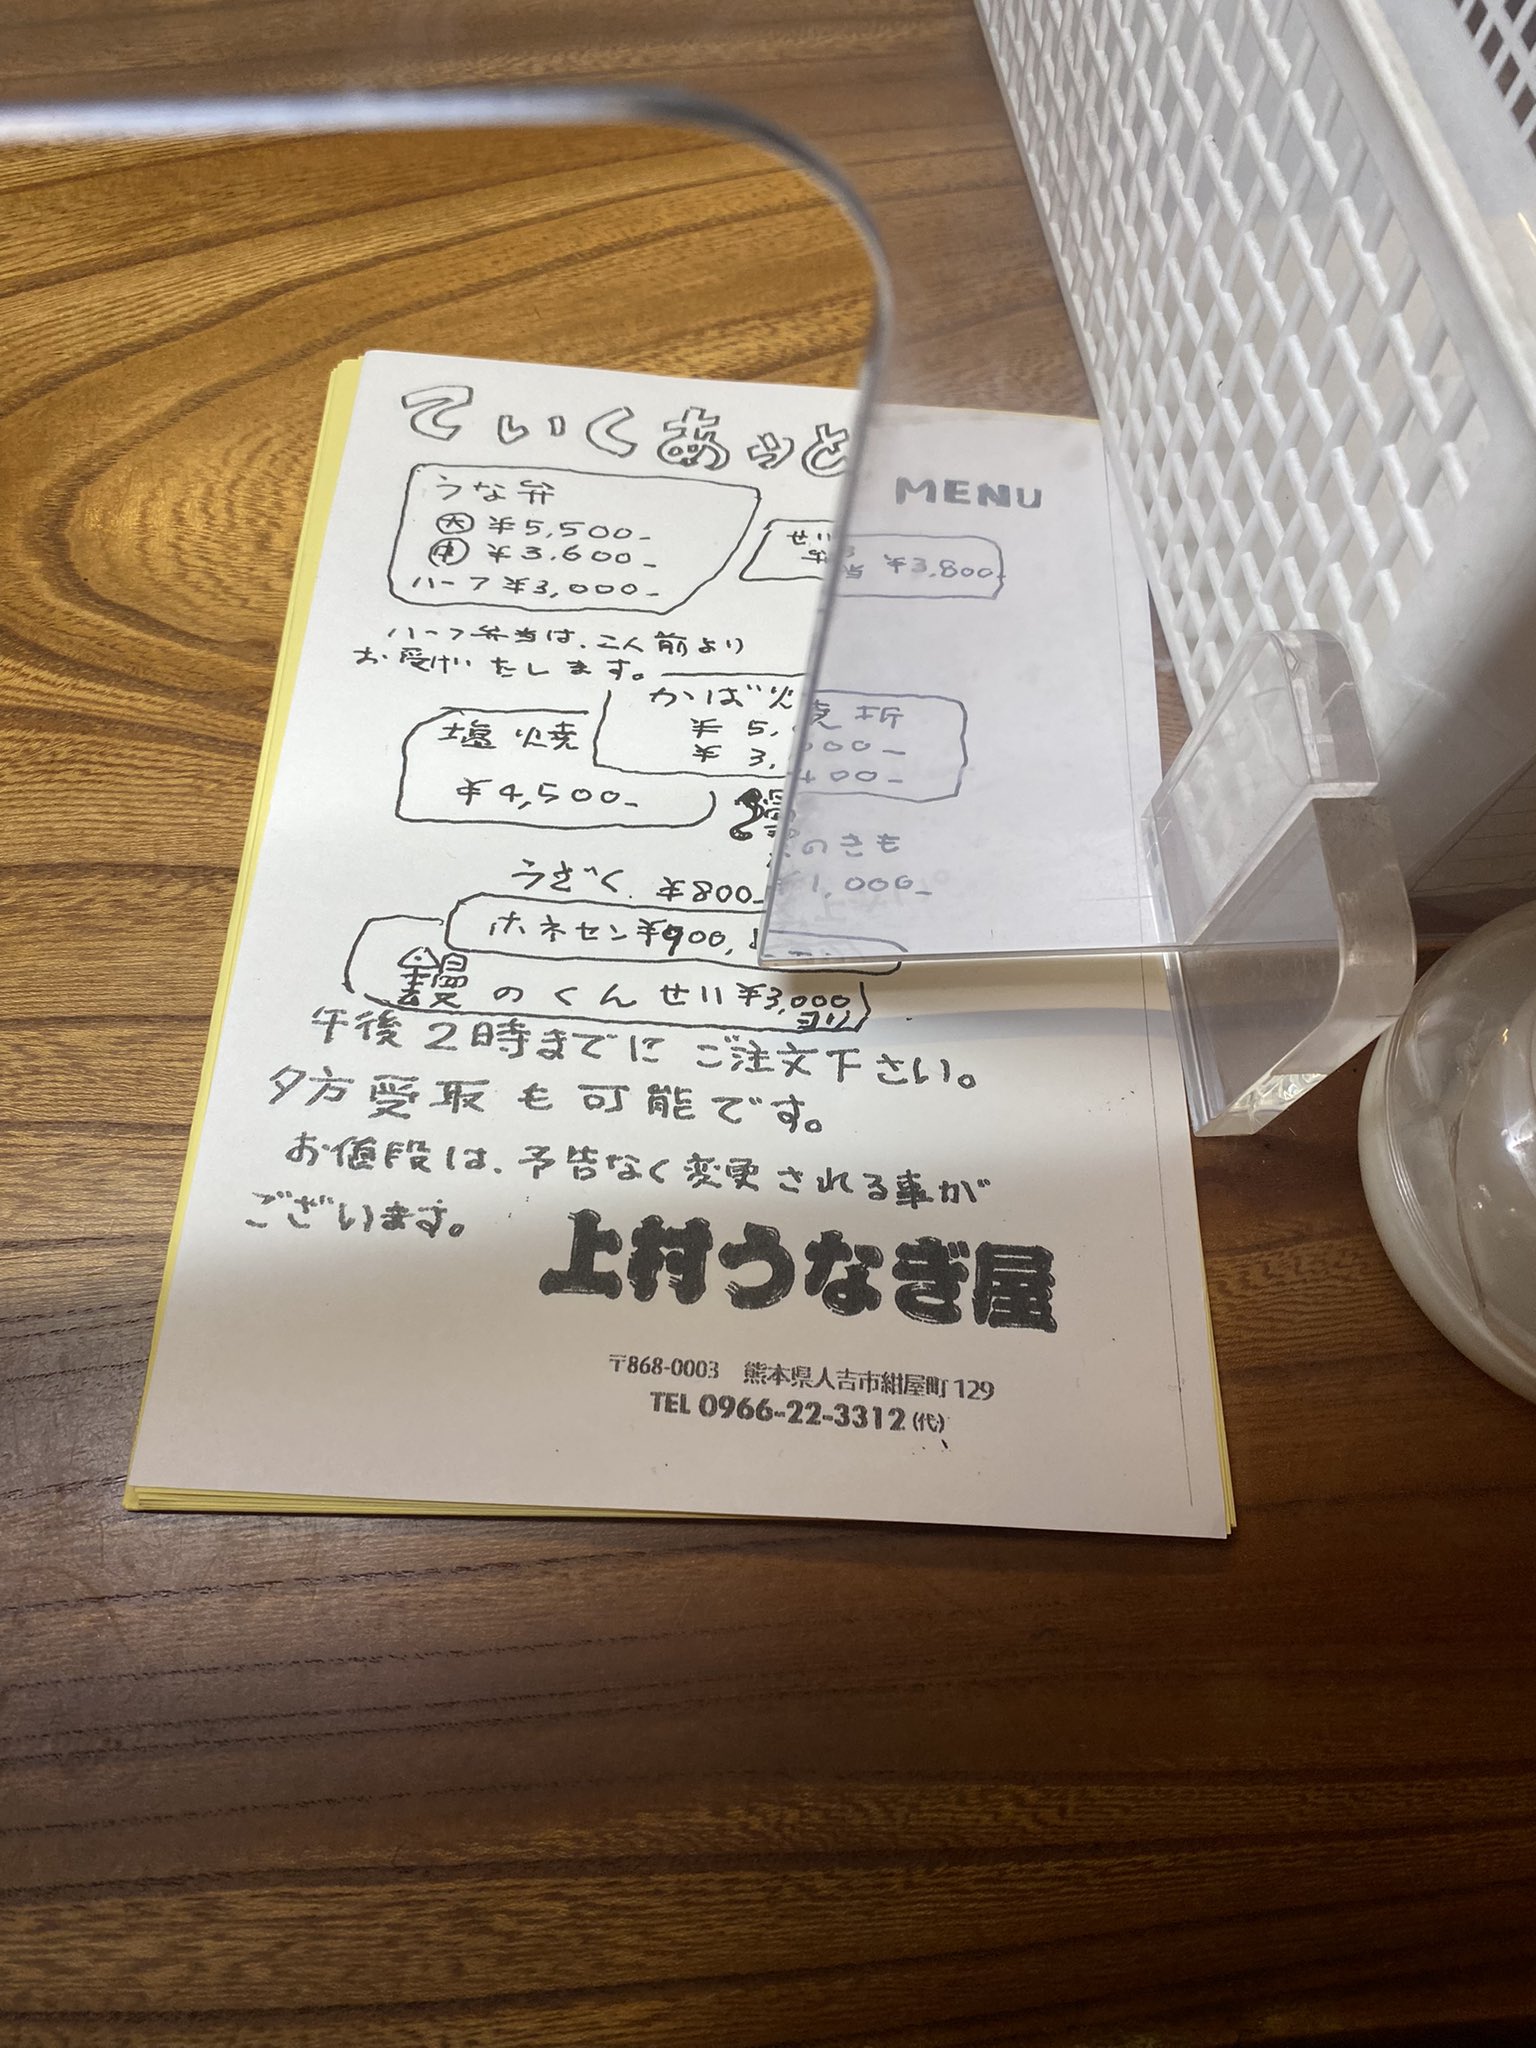 ていくあっと MENU
うな弁
大 ¥5,500-
中 ¥3,600-
ハーフ ¥3,000-
せい
¥3,800-
ハーフ弁当は、二人前より
お受けいたします。
かば焼折
¥5,
¥3,
塩焼
¥4,500-
鰻
のきも
¥1,000-
うざく ¥800-
ホネセン¥900,
鰻のくんせい¥3,000
午後2時までにご注文下さい。
夕方受取も可能です。
お値段は、予告なく変更される事が
ございます。
上村うなぎ屋
〒868-0003 熊本県人吉市紺屋町129
TEL 0966-22-3312(代)